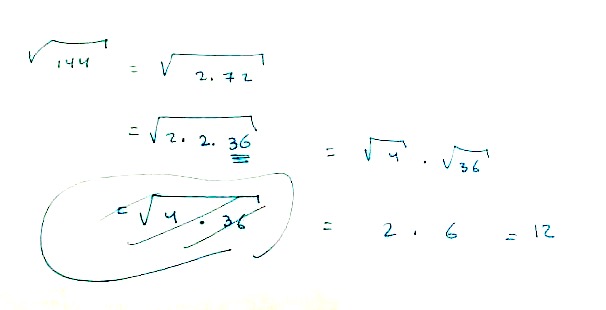 √144 = √2.72
= √2.2.36 = √4 . √36
= √4 . 36 = 2 . 6 = 12